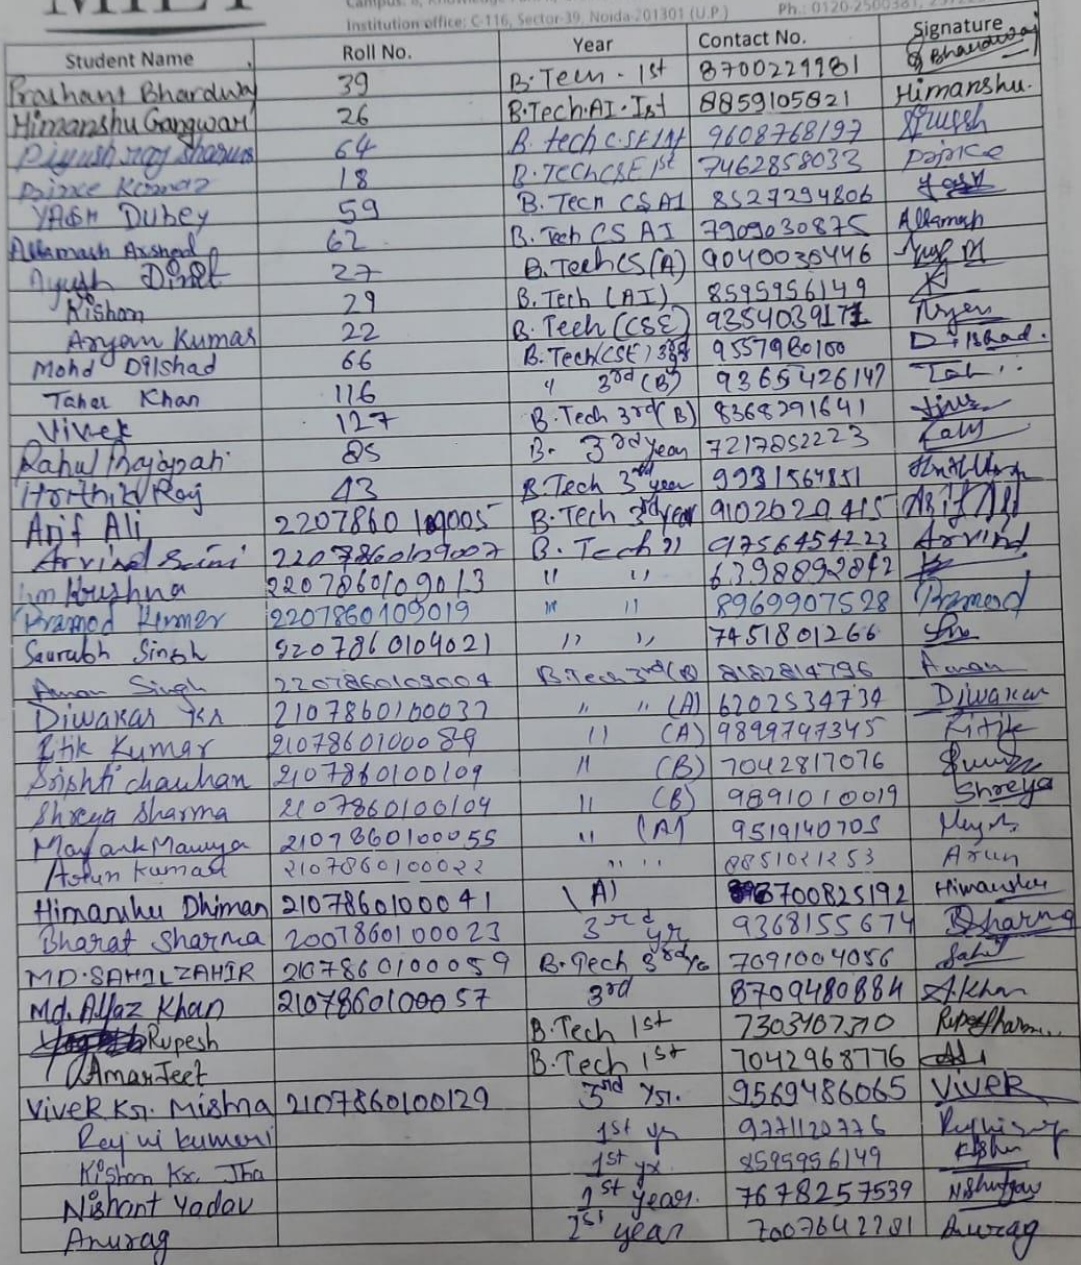 Institution office: C-116, Sector-39, Noida-201301 (U.P.) Ph.: 0120-2500381,
Student Name Roll No. Year Contact No. Signature
Prashant Bhardwaj 39 B.Tech - 1st 8700229981 Bhardwaj
Himanshu Gangwar 26 B.Tech.AI.Ist 8859105821 Himanshu.
Piyush raj sharma 64 B. tech C.SE 1st 9608768197
Prince Kumar 18 B.TECH CSE 1st 7462858033 Prince
YASH DUBEY 59 B.Tech CSAI 8527294806 Yash
Allamash Arshad 62 B. Tech CS AI 7909030875 Allamash
Ayush Dixit 27 B.Tech CS (A) 9040030446
Kishan 29 B.Tech (AI) 8595956149
Aryan Kumar 22 B. Tech (CSE) 9354039171 Aryan
Mohd Dilshad 66 B.Tech(CSE) 3rd 9557980100 Dilshad.
Taher Khan 116 " 3rd (B) 9365426147
Vivek 127 B.Tech 3rd (B) 8368291641
Rahul Prajapati 85 B. 3rd year 7217852223
Horthik Raj 43 B.Tech 3rd year 9931564851
Arif Ali 2207860109005 B.Tech 3rd year 9102629415 Arif Ali
Arvind Saini 2207860109007 B. Tech " 9756454223 Arvind
Krushna 2207860109013 " " 6398892842
Pramod Kumar 2207860109019 " " 8969907528 Pramod
Saurabh Singh 2207860109021 " " 7451801266
Aman Singh 2207860109004 B.Tech 3rd (B) 8182814796 Aman
Diwakar Kr 2107860100037 " " (A) 6202534739 Diwakar
Ritik Kumar 2107860100089 " (A) 9899747345 Ritik
Srishti chauhan 2107860100109 " (B) 7042817076
Shreya Sharma 2107860100104 " (B) 9891010019 Shreya
Mayank Maurya 2107860100055 " (A) 9519140705
Arun Kumar 2107860100022 " " 8851021253 Arun
Himanshu Dhiman 2107860100041 (A) 8700825192 Himanshu
Bharat Sharma 2007860100023 3rd yr 9368155674 BSharma
MD.SAHIL ZAHIR 2107860100059 B.Tech 3rd yr 7091004056 Sahil
Md. Alfaz Khan 2107860100057 3rd 8709480884 A.Khan
Rupesh B.Tech 1st 7303107310
Amar Jeet B.Tech 1st 7042968776
Vivek Kr. Mishra 2107860100129 3rd Yr. 9569486065 Vivek
kumari 1st yr 9771120776
Kishan Kr. Jha 1st yr 8595956149 Kishan
Nishant Yadav 1st year. 7678257539
Anurag 1st year 7007642281 Anurag